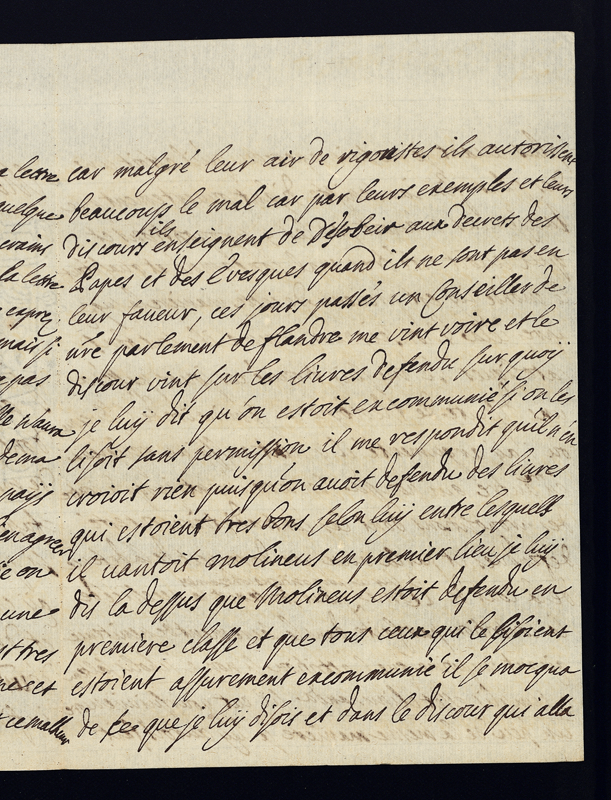 a lettre car malgré leur air de rigoristes ils autorissent
quelque beaucoups le mal car par leurs exemples et leurs
ils
discours enseignent de Désobeir aux decrets des
la lettre Papes et des Evesques quand ils ne sont pas en
leur faveur, ces jours passés un Conseiller de
mais si nre parlement de flandre me vint voire et le
pas discour vint sur les livres defendu sur quoy
je luy dit qu'on estoit excommunié si on les
dema lisoit sans permission il me respondit qu'il n'en
pays croioit rien puisqu'on avoit defendu des livres
qui estoient tres bons selon luy entre lesquels
on il vantoit molineus en premier lieu je luy
une dis la dessus que Molineus estoit defendu en
tres premiere classe et que tous ceux qui le lisoient
et estoient assurement excommunié il se mocqua
ce malheur de ce que je luy disois et dans le discour qui alla